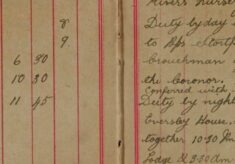 8
9.
6 30
10 30
11 45
Rivers nurse
Duty by day
to
the coronor.
Conferred with
Duty by night
Eversley House.
together 10.30 Pm
Lodge 2.30 Am